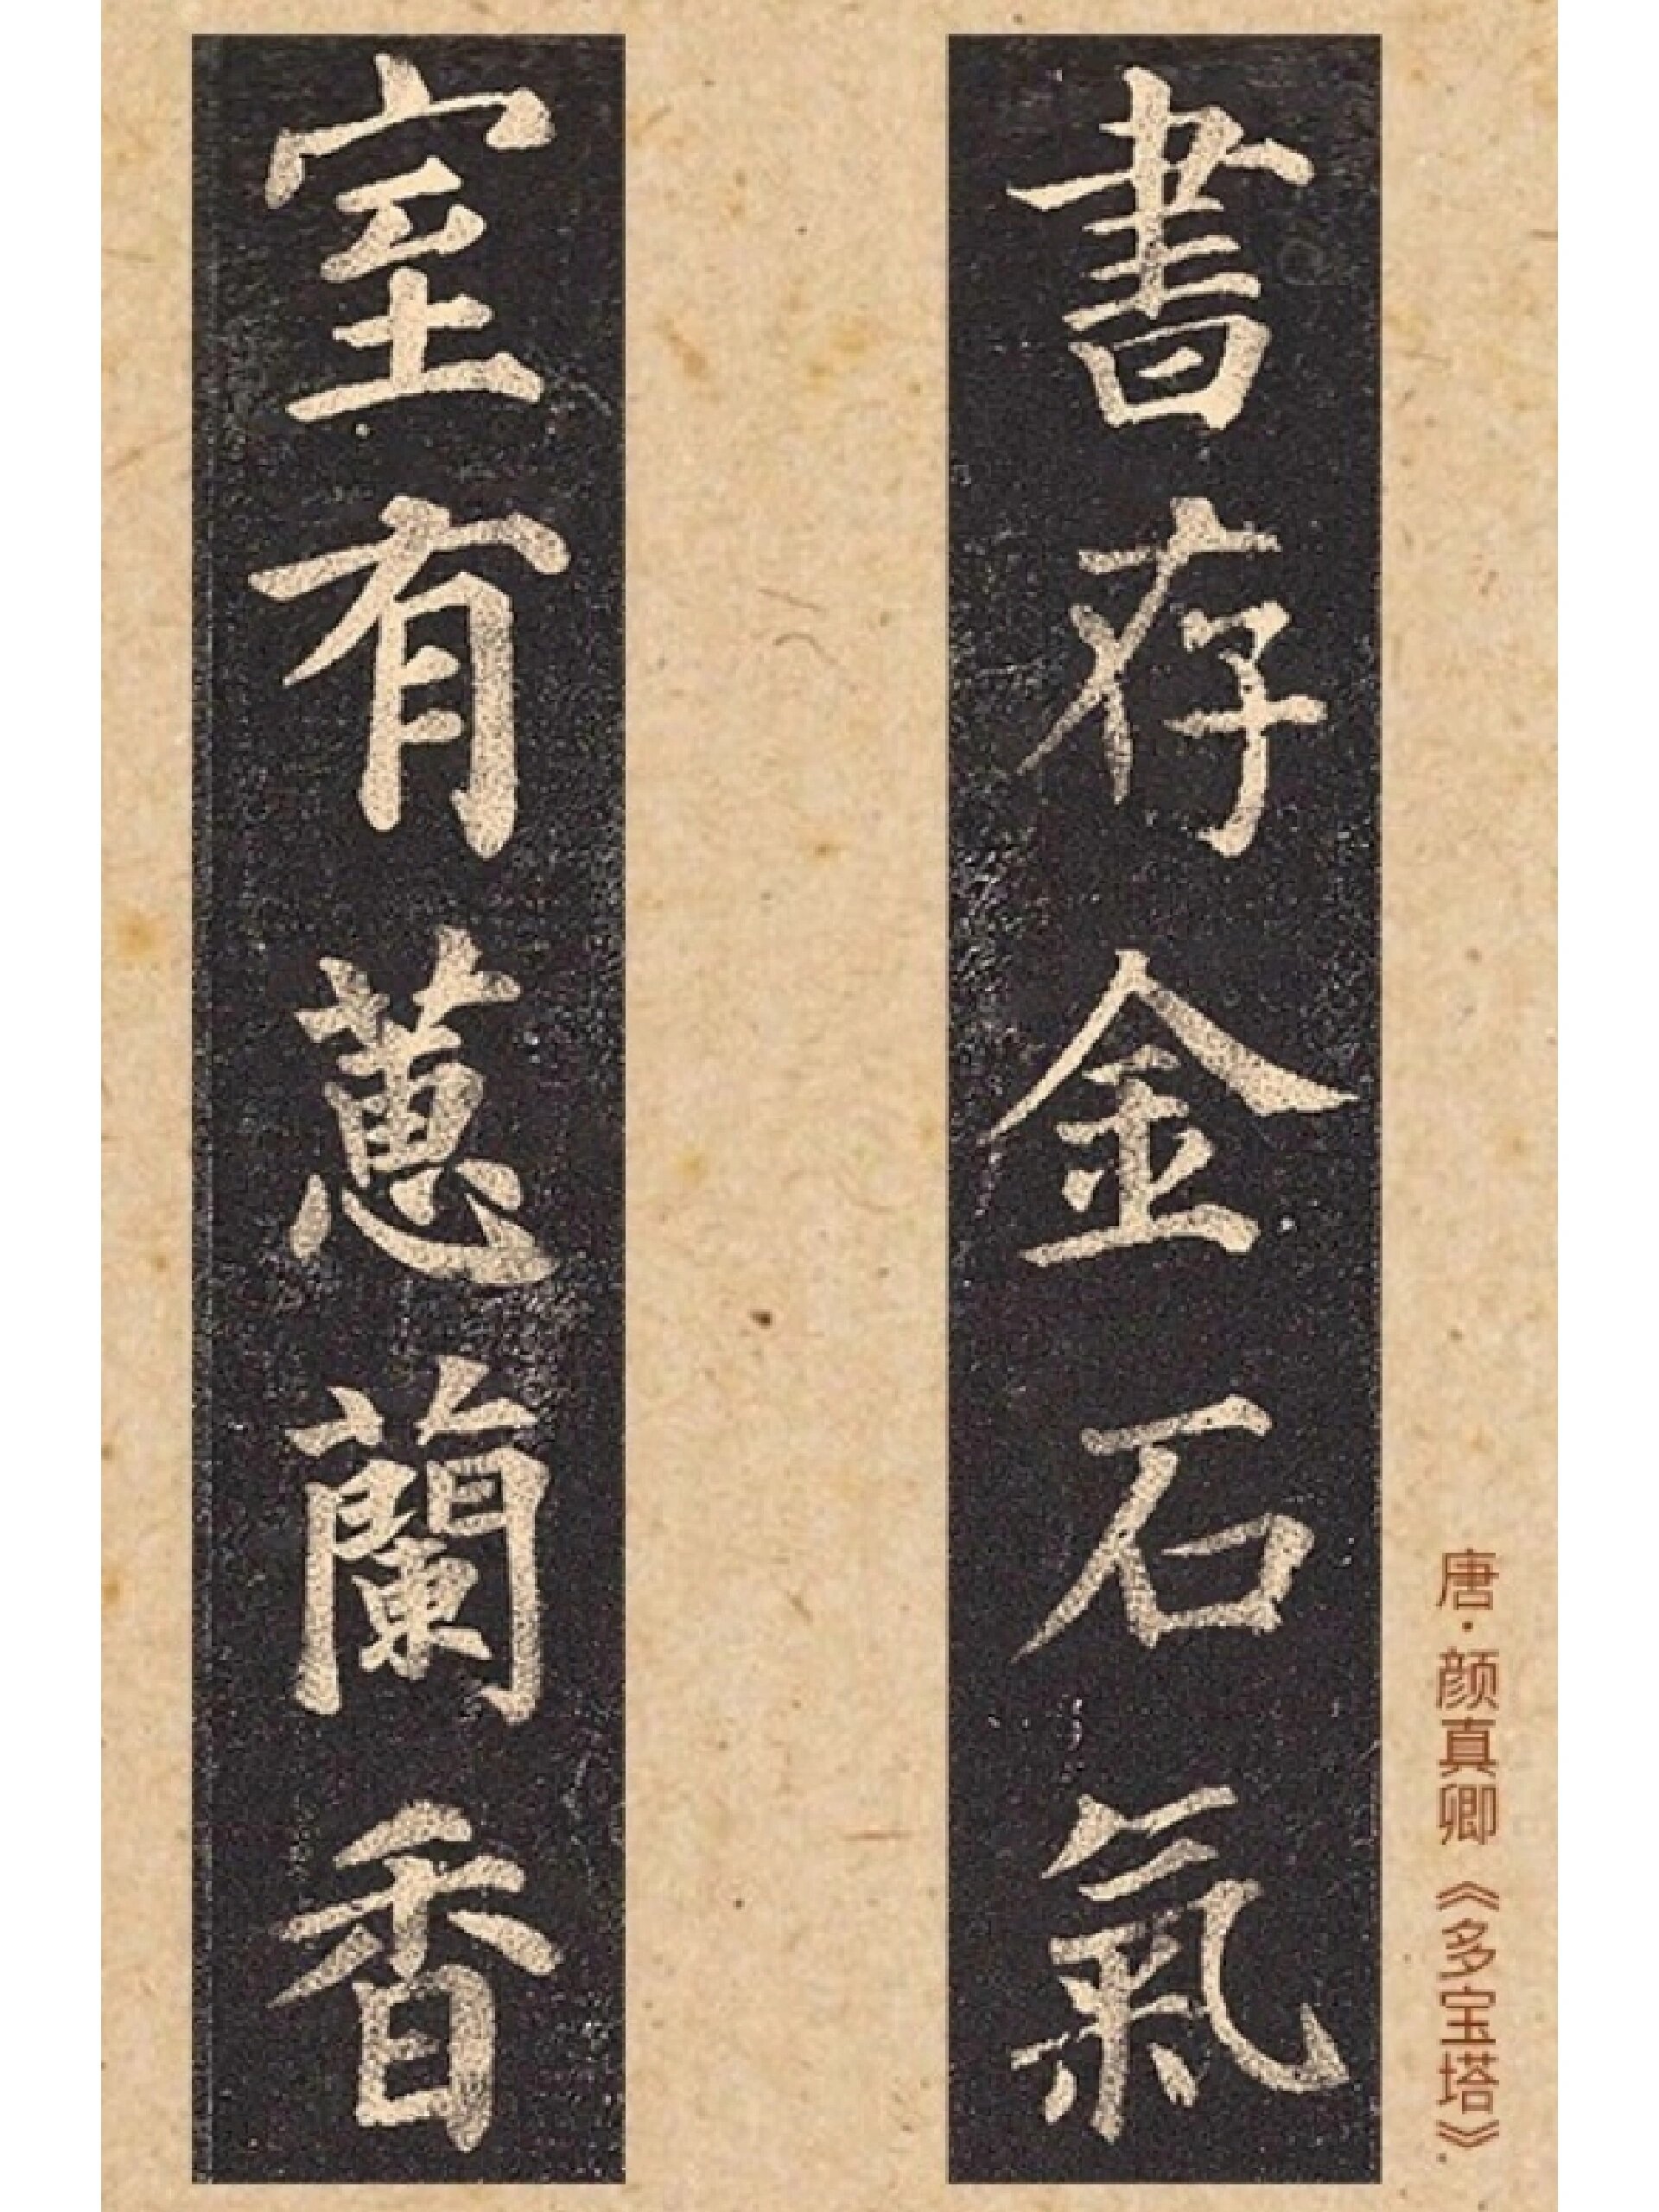 唐·颜真卿《多宝塔》
書存金石氣
室有蕙蘭香